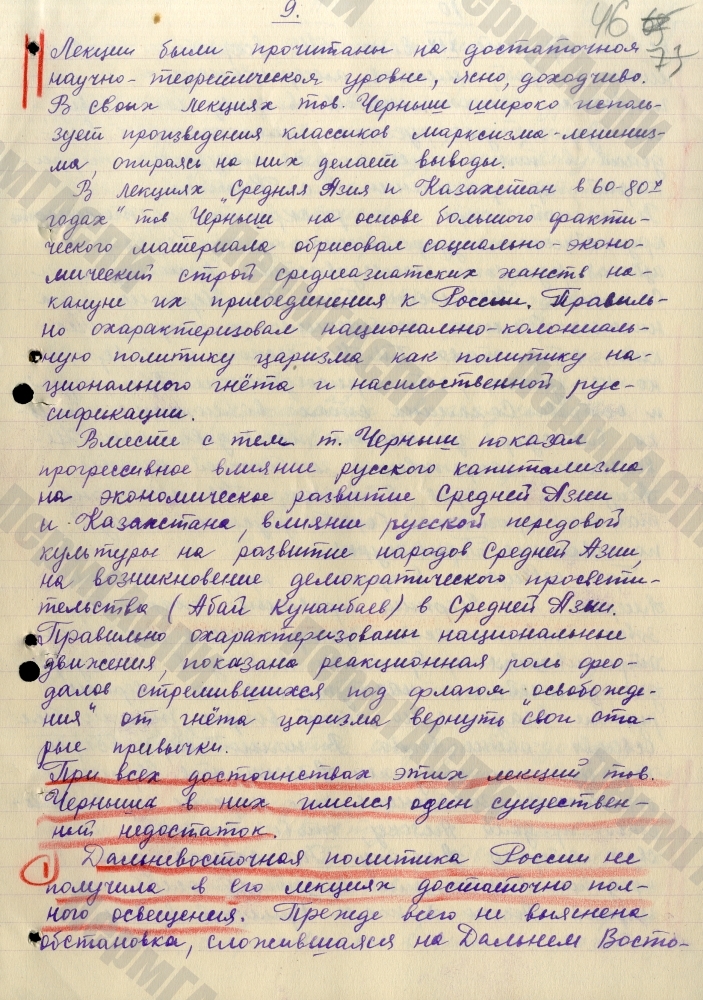 9.
46
73
Лекции были прочитаны на достаточном
научно-теоретическом уровне, ясно, доходчиво.
В своих лекциях тов. Черныш широко исполь-
зует произведения классиков марксизма-лениниз-
ма, опираясь на них делает выводы.
В лекциях „Средняя Азия и Казахстан в 60-80х
годах" тов Черныш на основе большого факти-
ческого материала обрисовал социально-эконо-
мический строй среднеазиатских ханств на-
кануне их присоединения к России. Правиль-
но охарактеризовал национально-колониаль-
ную политику царизма как политику на-
ционального гнёта и насильственной рус-
сификации.
Вместе с тем т. Черныш показал
прогрессивное влияние русского капитализма
на экономическое развитие Средней Азии
и Казахстана, влияние русской передовой
культуры на развитие народов Средней Азии,
на возникновение демократического просвети-
тельства (Абай Кунанбаев) в Средней Азии.
Правильно охарактеризованы национальные
движения, показана реакционная роль фео-
далов стремившихся под флагом „освобожде-
ния" от гнёта царизма вернуть свои ста-
рые привычки.
При всех достоинствах этих лекций тов.
Черныша в них имелся один существен-
ный недостаток.
1 Дальневосточная политика России не
получила в его лекциях достаточно пол-
ного освещения. Прежде всего не выяснена
обстановка, сложившаяся на Дальнем Восто-
ПермГАСПИ